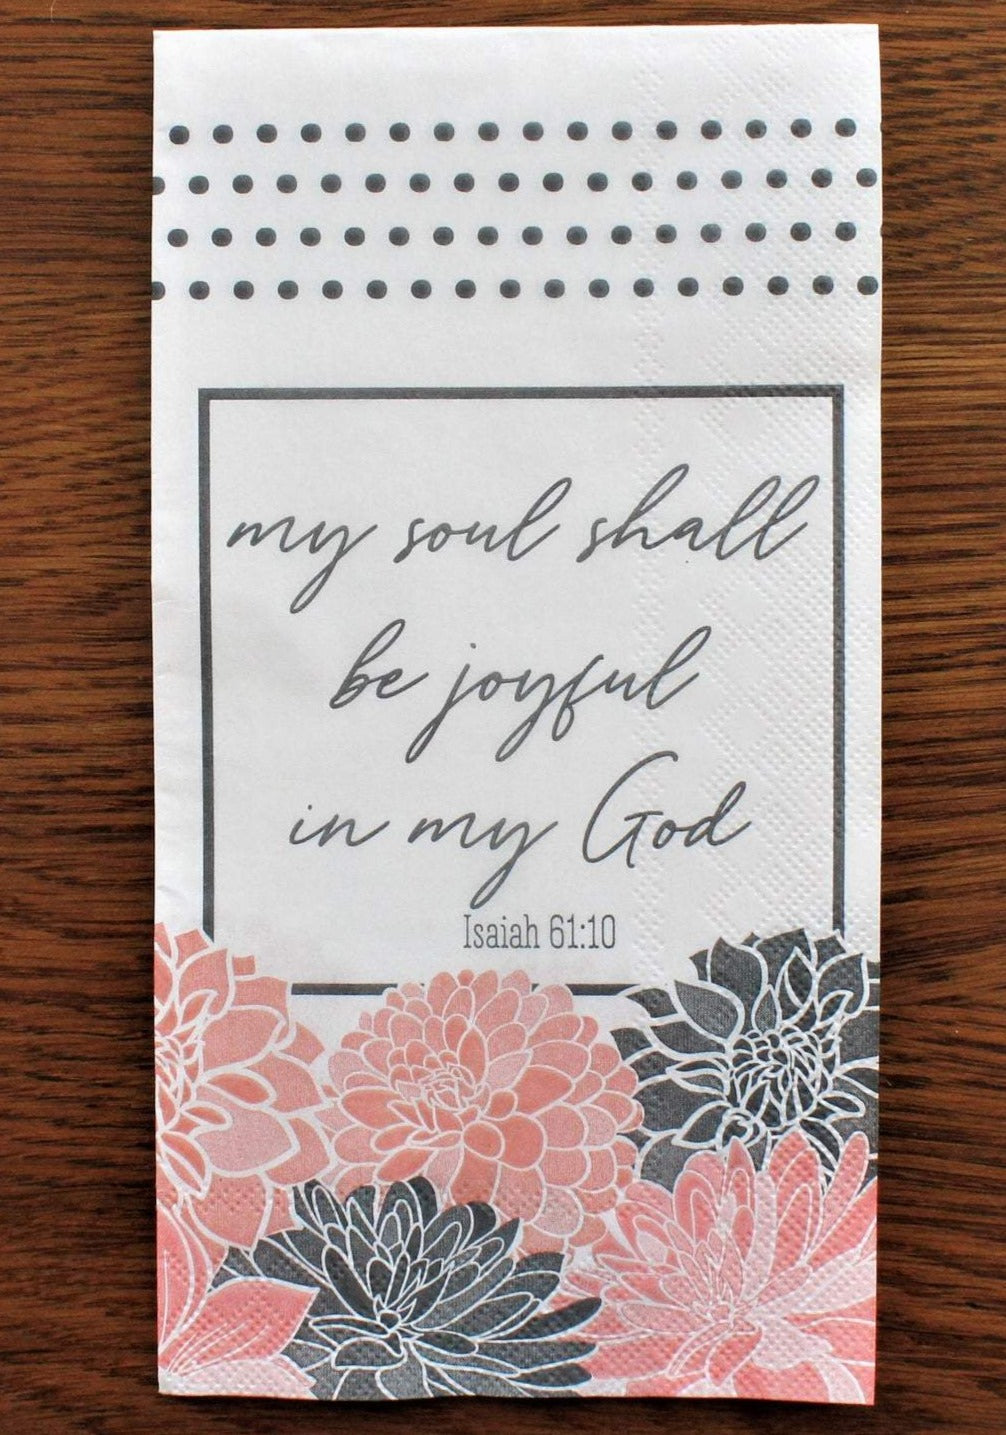 my soul shall
be joyful
in my God
Isaiah 61:10